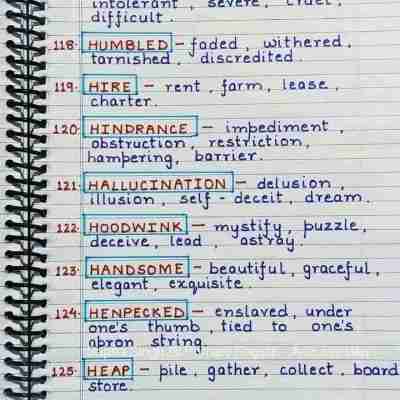 intolerant, severe, cruel,
difficult.
118. HUMBLED - faded, withered,
tarnished, discredited.
119. HIRE - rent, farm, lease,
charter.
120. HINDRANCE - impediment,
obstruction, restriction,
hampering, barrier.
121. HALLUCINATION - delusion,
illusion, self-deceit, dream.
122. HOODWINK - mystify, puzzle,
deceive, lead, astray.
123. HANDSOME - beautiful, graceful,
elegant, exquisite.
124. HENPECKED - enslaved, under
one's thumb, tied to one's
apron string.
125. HEAP - pile, gather, collect, board
store.